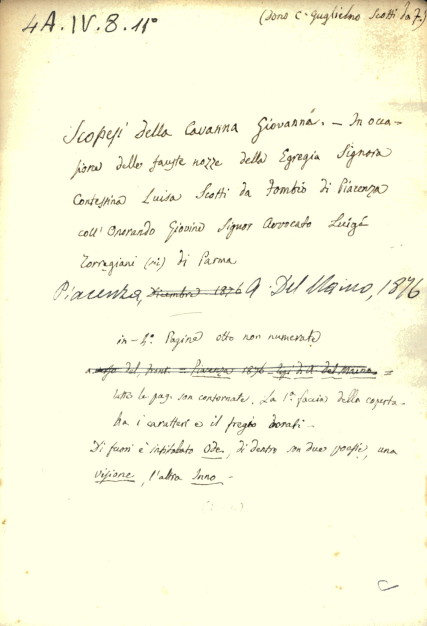 4A.IV.8.11°
(dono C. Guglielmo Scotti da F.)
Scopesi della Cavanna Giovanna. – In occa-
sione delle fauste nozze della Egregia Signora
Contessina Luisa Scotti da Fombio di Piacenza
coll' Onorando Giovine Signor Avvocato Luigi
Torrigiani (sic) di Parma
Piacenza, Dicembre 1876 A. Del Maino, 1876
in-4° Pagine otto non numerate
del front. = Piacenza 1876 tipi di A. del Maino =
tutte le pag. son contornate. La 1ª faccia della coperta
ha i caratteri e il fregio dorati.
Di fuori è intitolato Ode, di dentro son due poesie, una
visione, l'altra Inno.